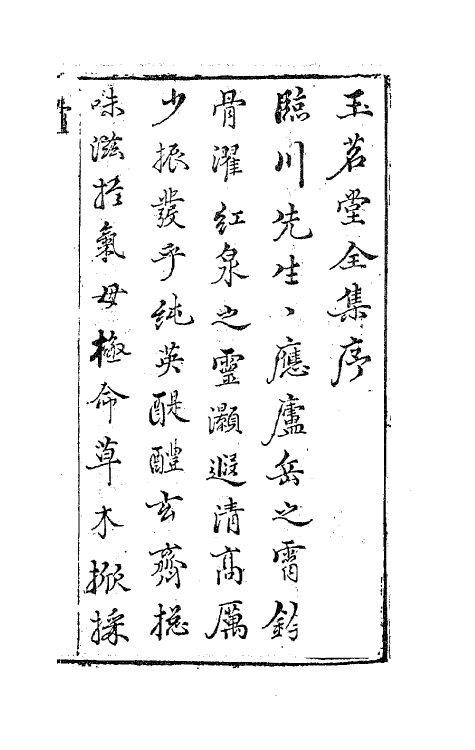 玉茗堂全集序
臨川先生〻應廬岳之霄鈐
骨濯紅泉之靈灝遐清高厲
少振發乎純英醍醴玄齋挹
味滋挓氣母極命草木掀採